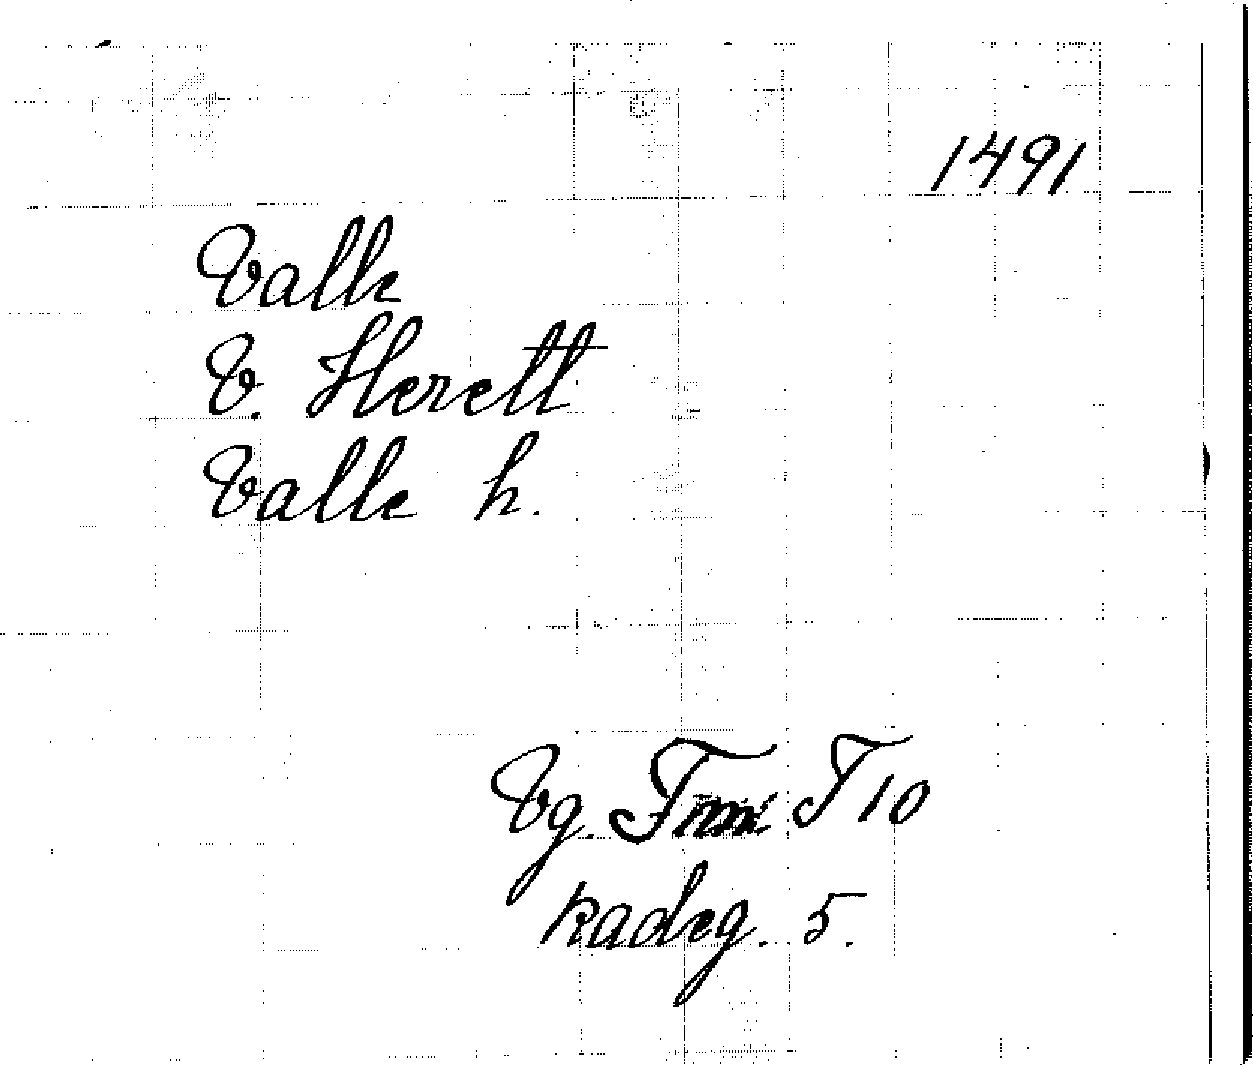 1491
Valle
V. Herett
Valle h.
Vg. T10
kadeg. 5.